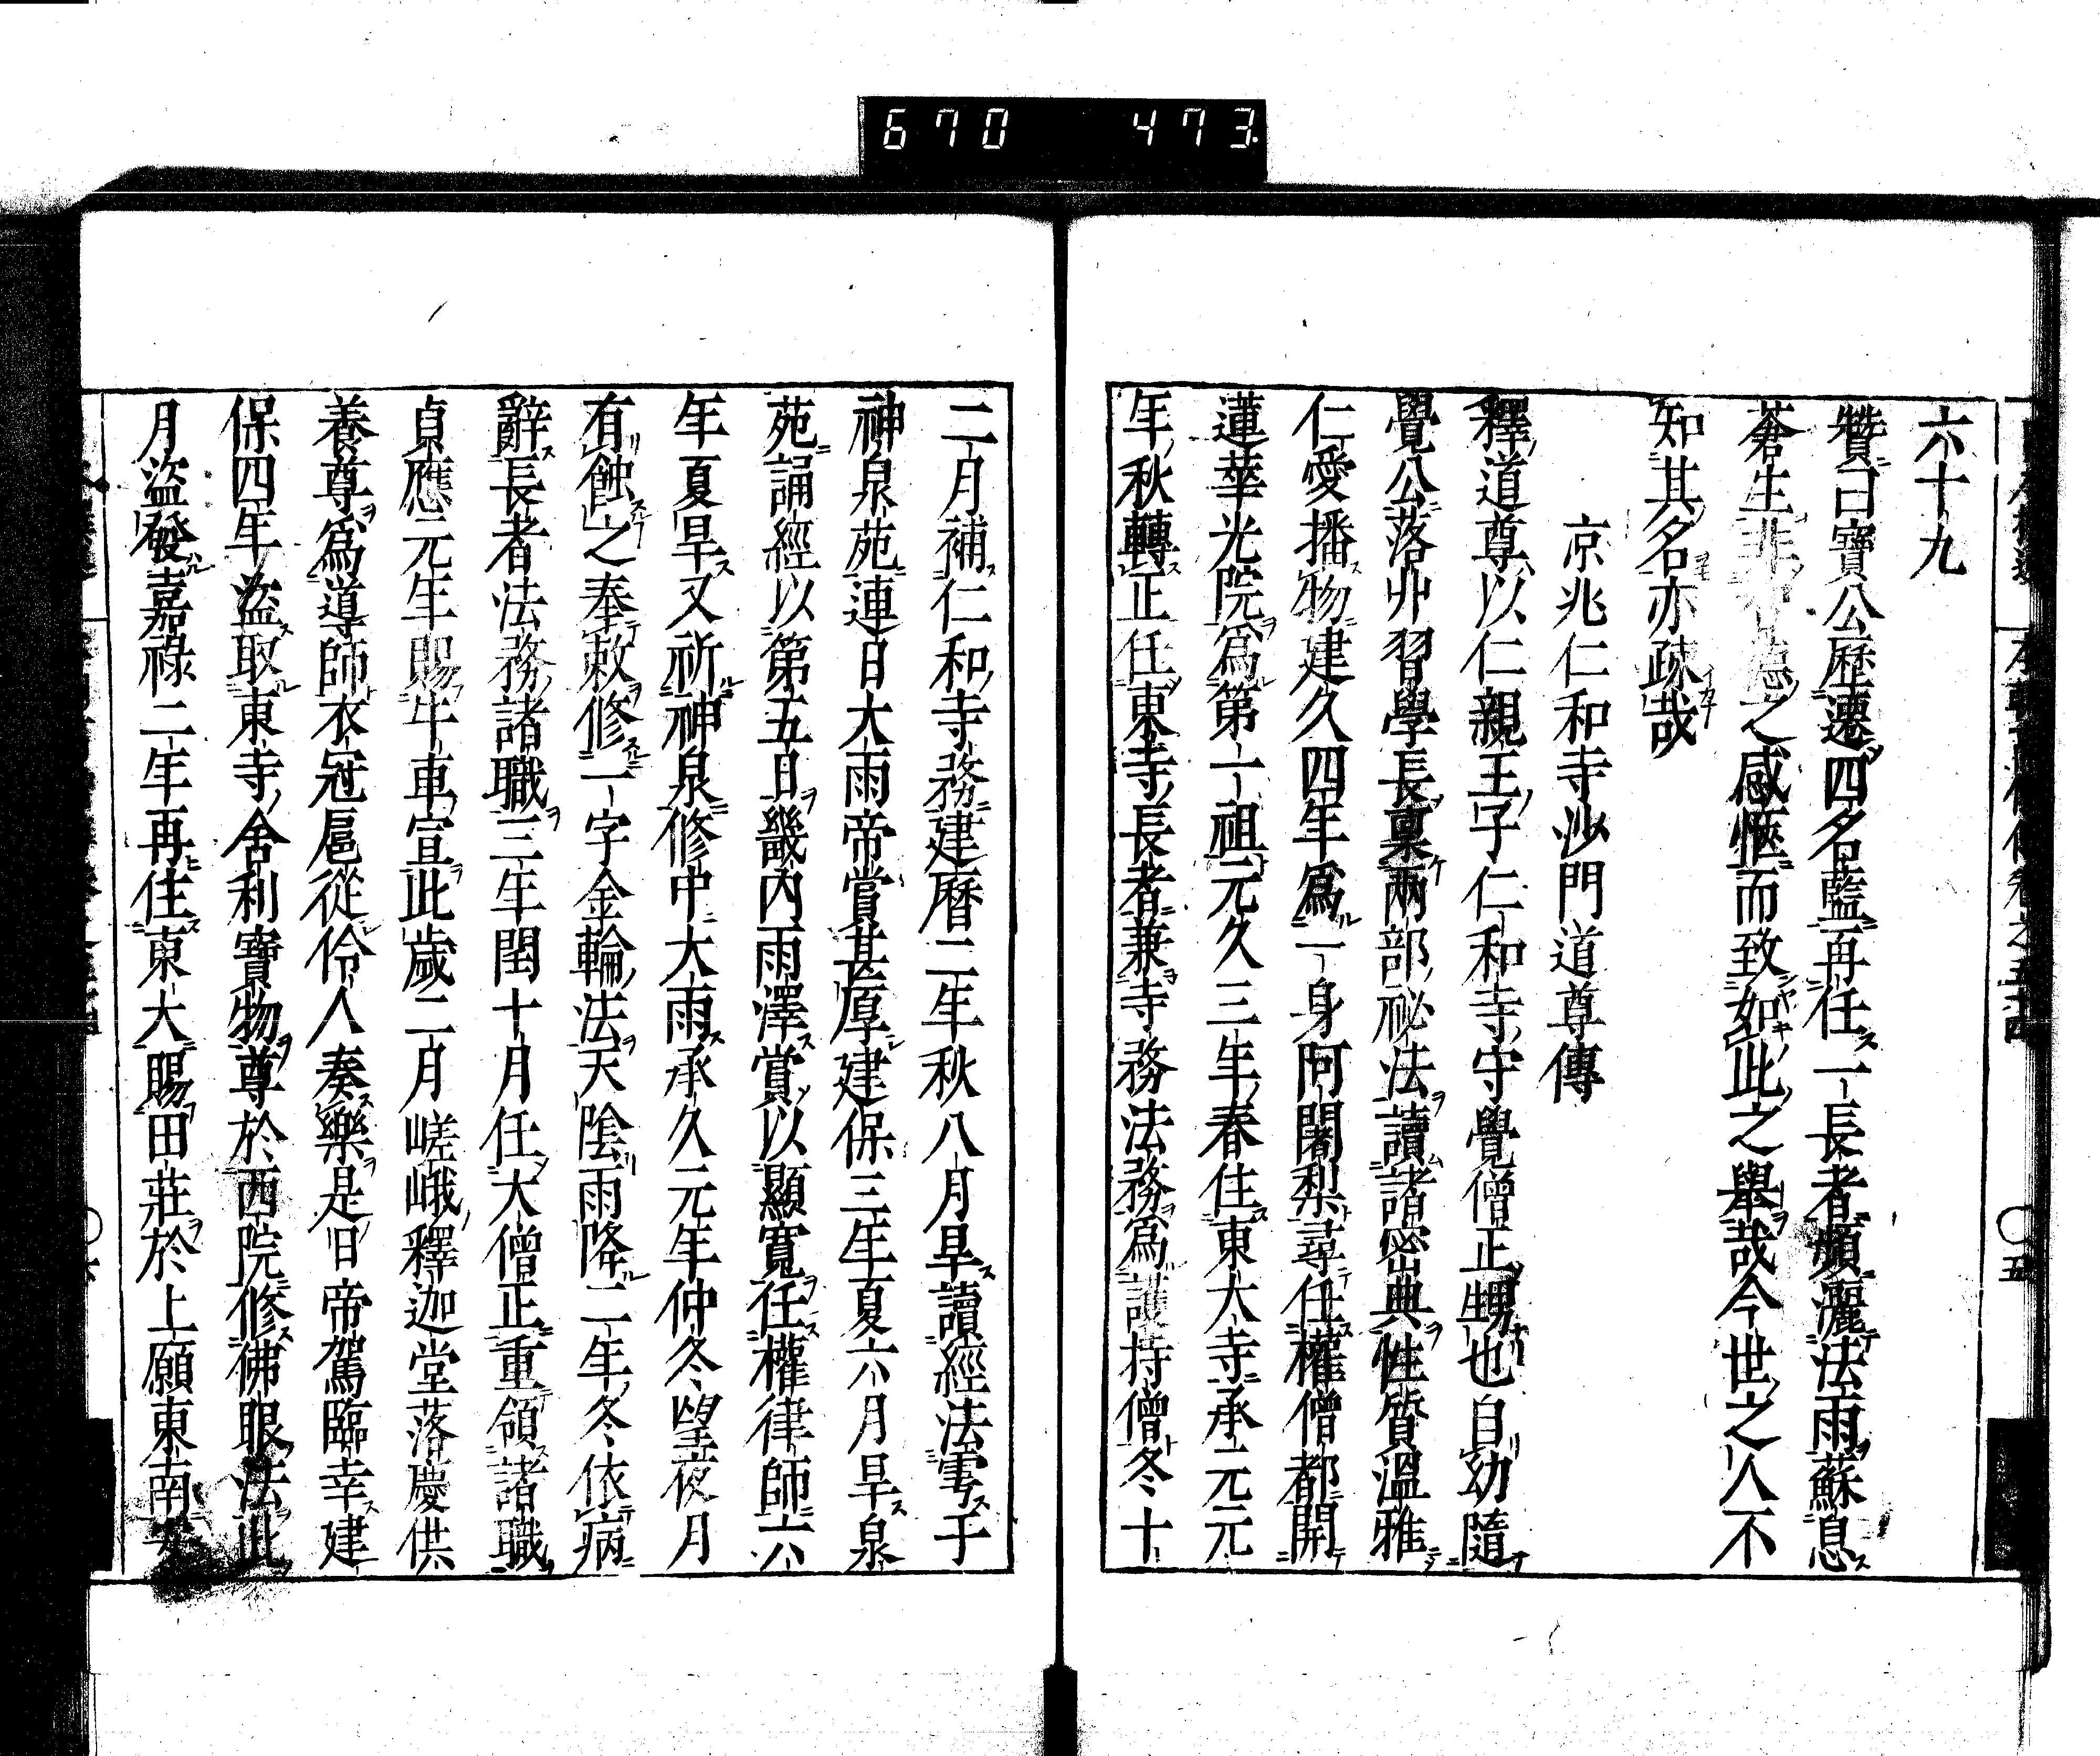 670 473
六十九
贊曰寶公歷遷四名藍再任一長者頻灑法雨蘇息
蒼生非知德之感愜而致如此之舉哉今世之人不
知其名亦疎哉
京兆仁和寺沙門道尊傳
釋道尊以仁親王子仁和寺守覺僧正甥也自幼隨
覺公落丱習學長稟兩部祕法讀諸密典性質溫雅
仁愛播物建久四年爲一身阿闍梨尋任權僧都開
蓮華光院爲第一祖元久三年春住東大寺承元元
年秋轉正任東寺長者兼寺務法務爲護持僧冬十
二月補仁和寺務建曆二年秋八月旱讀經法雩于
神泉苑連日大雨帝賞甚厚建保三年夏六月旱泉
苑誦經以第五日畿內雨澤賞以顯寬任權律師六
年夏旱又祈神泉修中大雨承久元年仲冬望夜月
有蝕之奉敕修一字金輪法天陰雨降二年冬依病
辭長者法務諸職三年閏十月任大僧正重領諸職
貞應元年賜牛車宣此歲二月嵯峨釋迦堂落慶供
養尊爲導師衣冠扈從伶人奏樂是日帝駕臨幸建
保四年盜取東寺舍利寶物尊於西院修佛眼法此
月盜發嘉祿二年再住東大賜田莊於上願東南